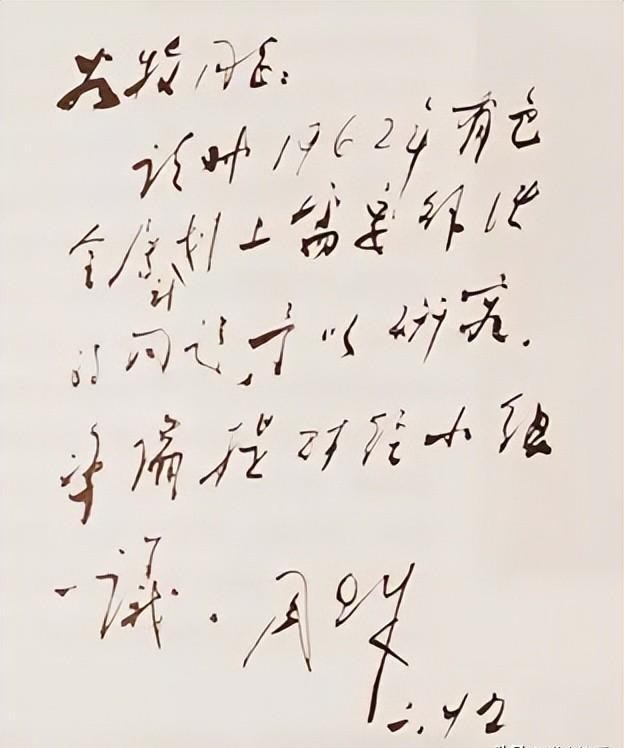 谷牧同志:
请就1962年有色
金属计划上需要解决
的问题,予以研究,
准备提财经小组
一议。周恩来